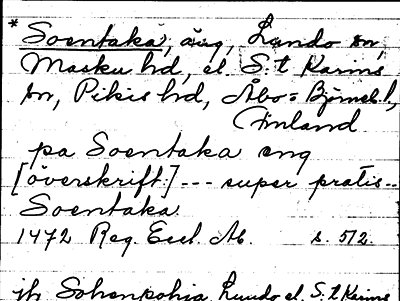 *Soentaka, äng, Lundo sn,
Masku hd, el. S:t Karins
sn, Pikis hd, Åbo=Björnebl,
Finland
pa Soentaka eng
[överskrift:] --- super pratis --
Soentaka
1472 Reg. Eccl. Ab. s. 512.
jfr Sohenkohia Lundo el. S:t Karins